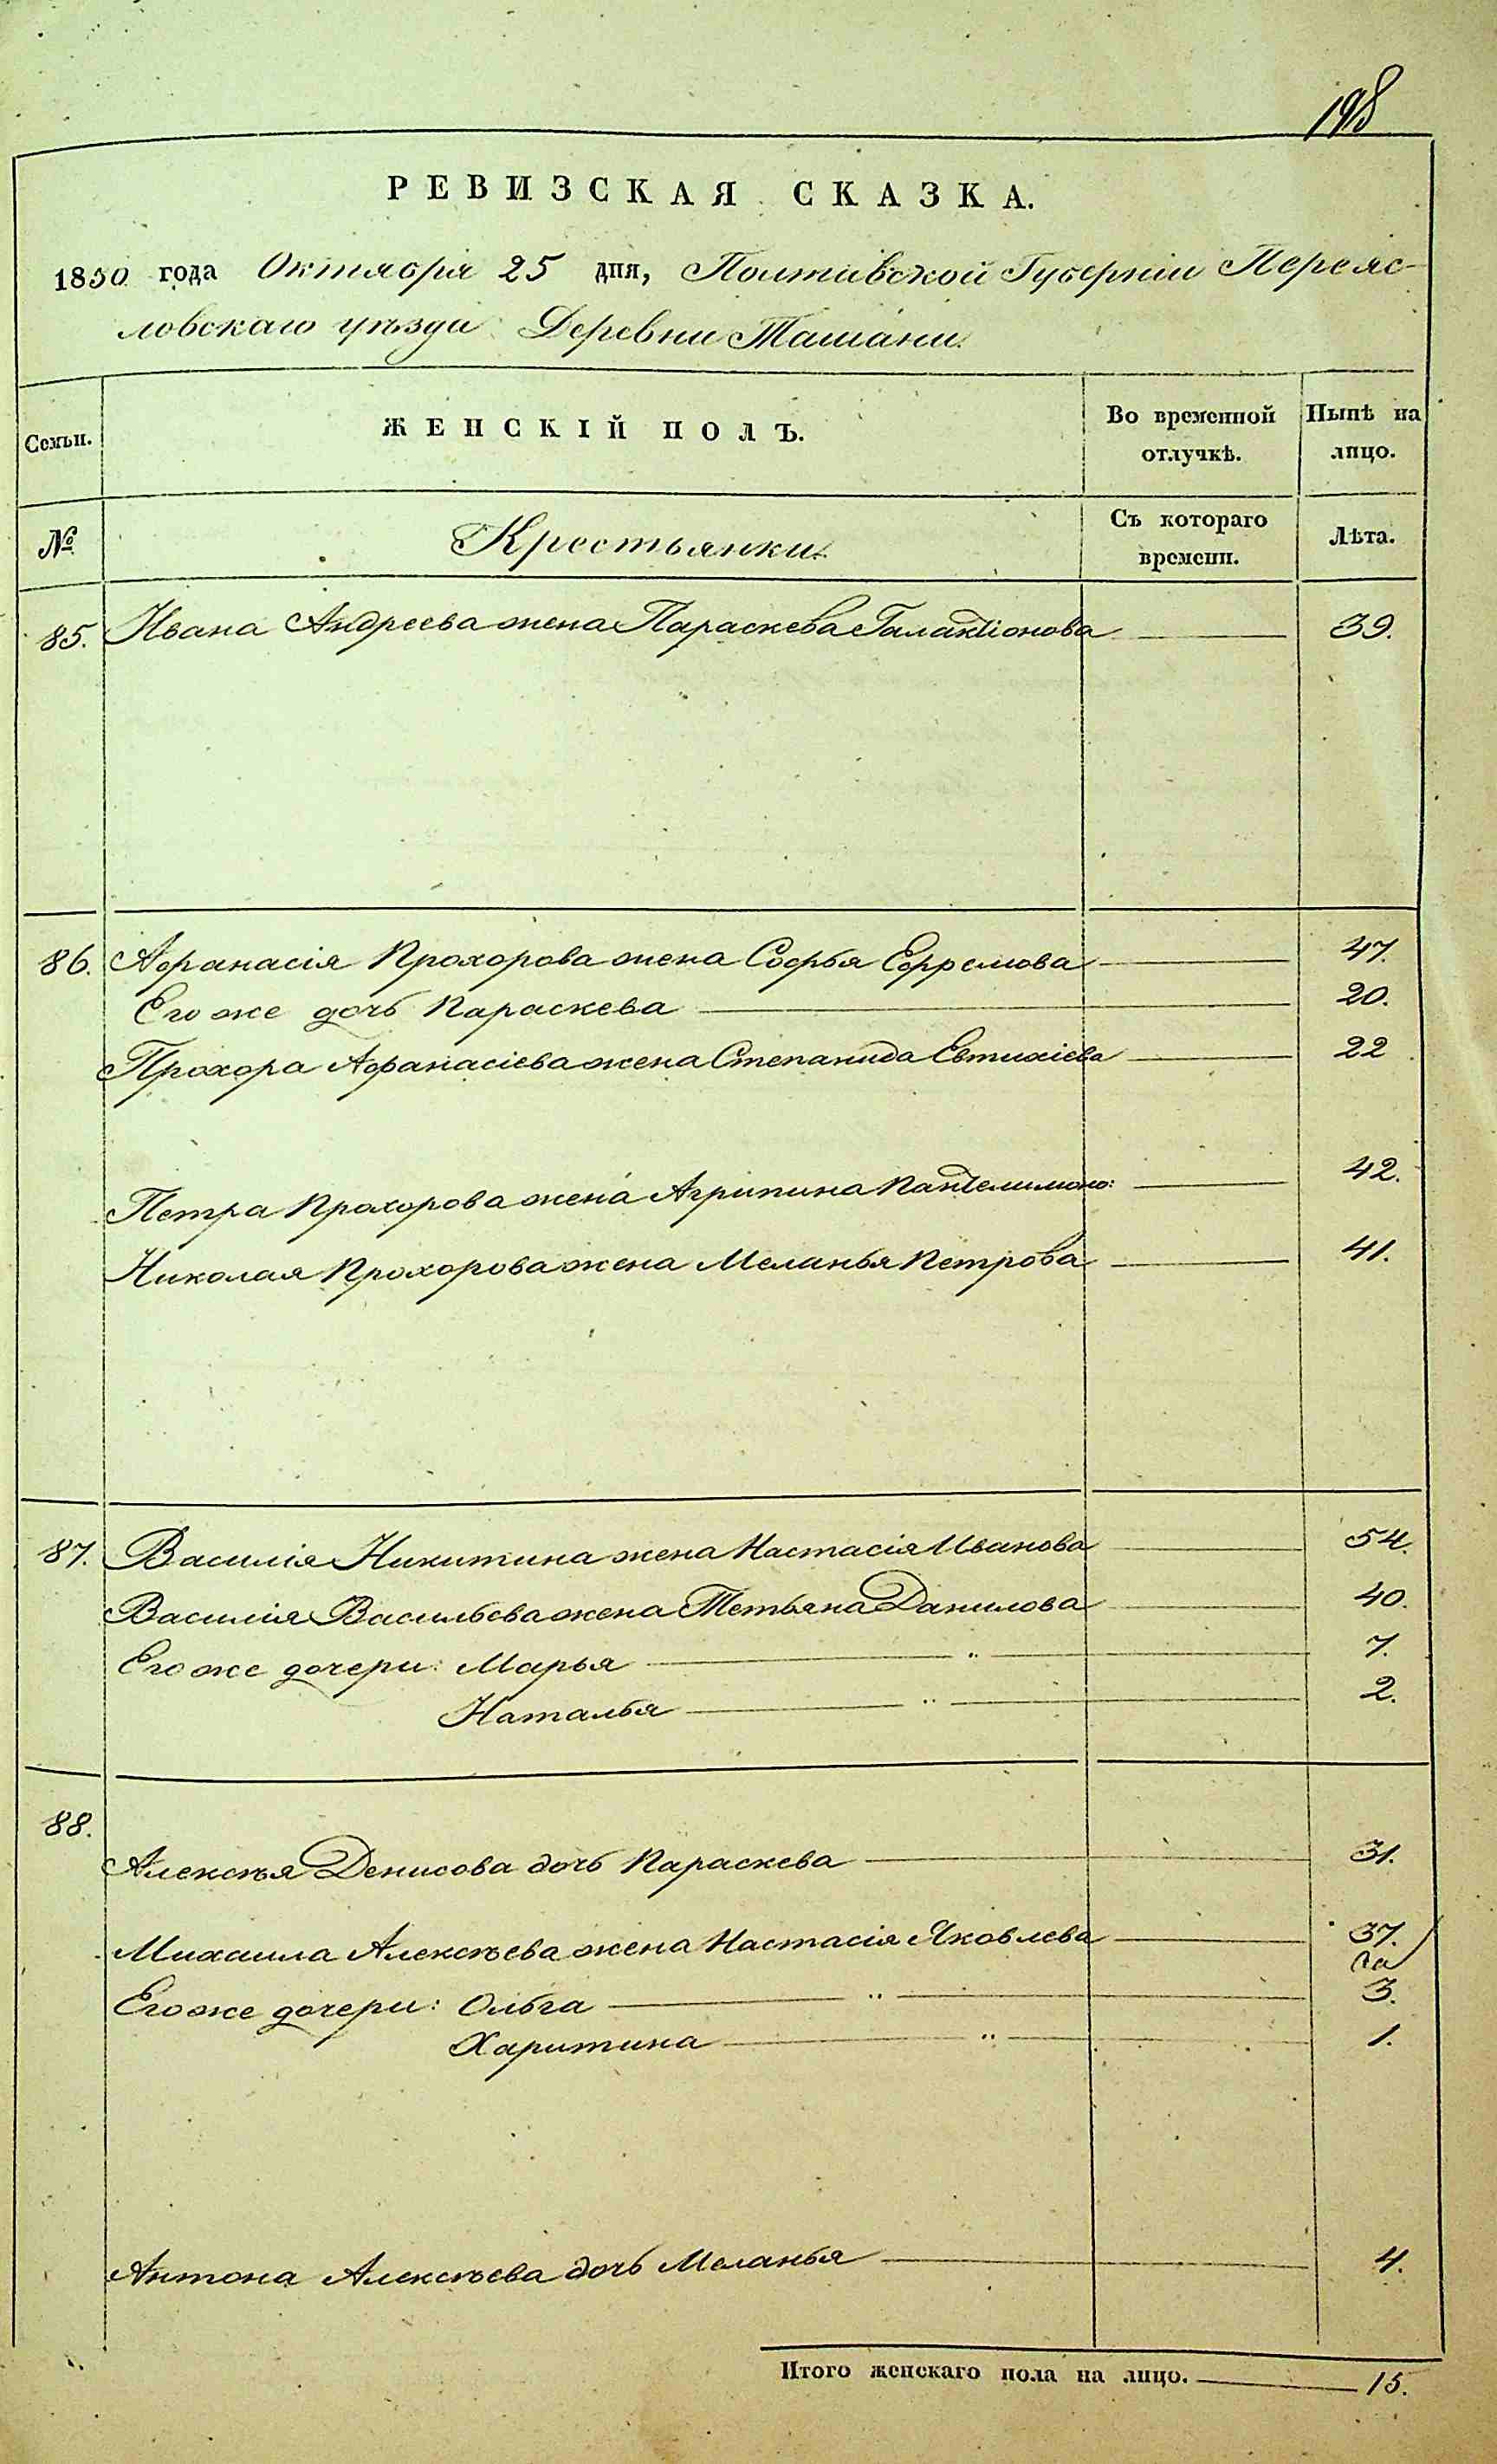 198
РЕВИЗСКАЯ СКАЗКА.
1850 года Октября 25 дня, Полтавской Губерніи Переяс-
ловскаго уѣзда Деревни Ташани.
Семьи. ЖЕНСКІЙ ПОЛЪ. Во временной отлучкѣ. Нынѣ на лицо.
№ Крестьянки. Съ котораго времени. Лѣта.
85. Ивана Андреева жена Параскева Галактіонова 39.
86. Афанасія Прохорова жена Софья Ефремова 47.
Его же дочь Параскева 20.
Прохора Афанасіева жена Степанида Евтихіева 22
Петра Прохорова жена Агрипина Пантелимоно: 42.
Николая Прохорова жена Меланья Петрова 41.
87. Василія Никитина жена Настасія Иванова 54.
Василія Васильева жена Тетьяна Данилова 40.
Его же дочери: Марья " 7.
Наталья " 2.
88.
Алексѣя Денисова дочь Параскева 31.
Михаила Алексѣева жена Настасія Яковлева 37.
Его же дочери: Ольга " 3.
Харитина " 1.
Антона Алексѣева дочь Меланья 4.
Итого женскаго пола на лицо. 15.